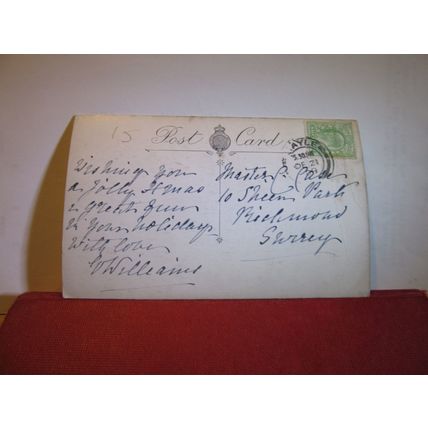 15
Post Card
AYLE
DE 21
Wishing you
a jolly Xmas
& great fun
in your holidays
With love
Williams
Master C.
10 Sheen Park
Richmond
Surrey